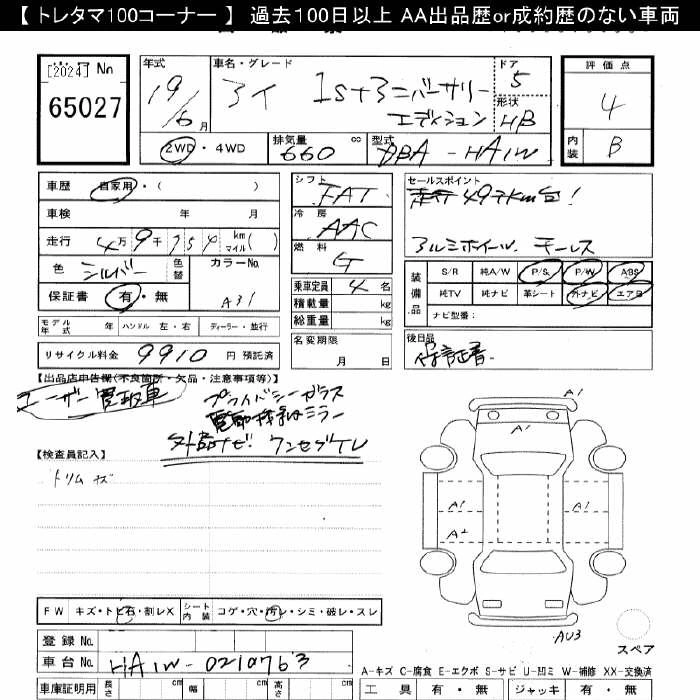 【 トレタマ100コーナー 】 過去100日以上 AA出品歴or成約歴のない車両
[2024] No
65027
年式
19/6月
車名・グレード
アイ 1st+3=バーサリー
エディション
ドア
5
形状
HB
評価点
4
内装
B
2WD・4WD
排気量
660 cc
型式
DBA-HA1W
車歴 自家用・( )
車検 年 月
走行 4万9千754 km マイル( )
色 シルバー 色替
カラーNo.
A31
保証書 有・無
モデル年式 年 ハンドル 左・右 ディーラー・並行
リサイクル料金 9910 円 預託済
シフト
FAT
冷房
AAC
燃料
G
乗車定員 4 名
積載量 kg
総重量 kg
名変期限
月 日
セールスポイント
走行49千km台!
アルミホイール
装備品
S/R 純A/W P/S P/W ABS
純TV 純ナビ 革シート 外ナビ エアB
ナビ型番:
後日品
保証書
【出品店申告欄(不良箇所・欠品・注意事項等)】
ユーザー買取車
プライバシーガラス
電動格納ミラー
外品ナビ ワンセグTV
【検査員記入】
トリム キズ
A1
A1
A1
A1
A2
AU3
スペア
FW キズ・トビ石・割レX シート内装 コゲ・穴・汚レ・シミ・破レ・スレ
登録 No.
車台 No. HA1W-0210763
車庫証明用 長さ cm 幅 cm 高さ cm
A-キズ C-腐食 E-エクボ S-サビ U-凹ミ W-補修 XX-交換済
工具 有・無 ジャッキ 有・無